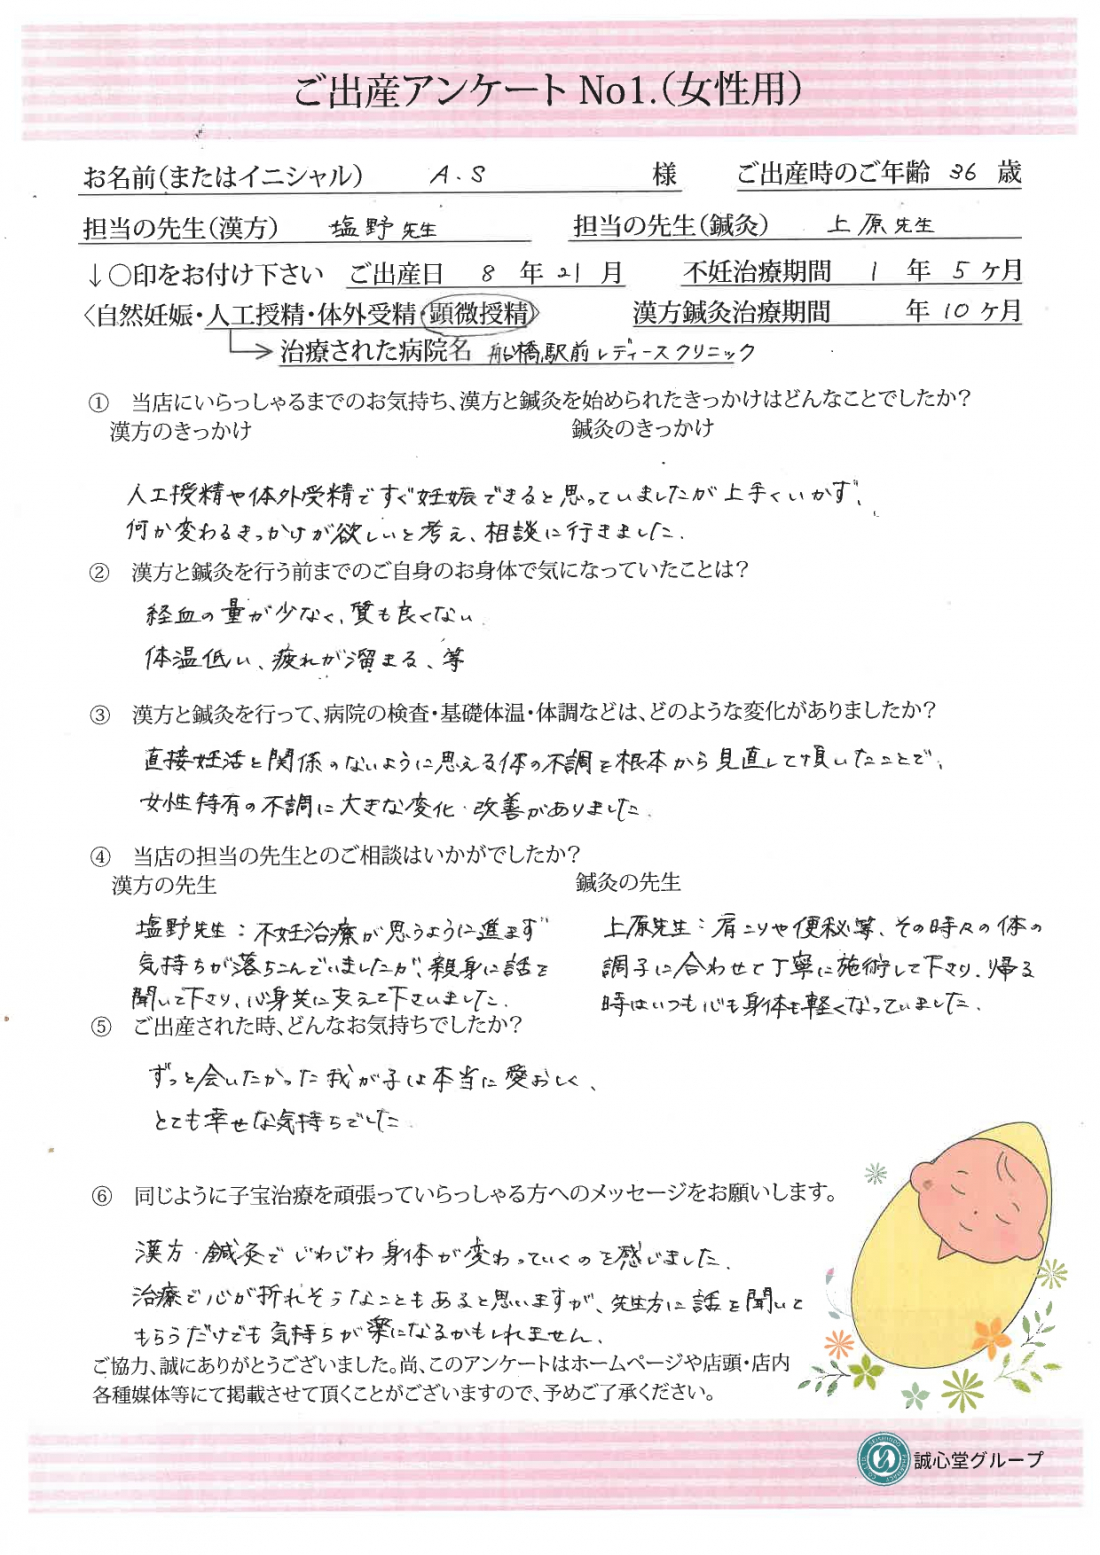 ご出産アンケート No1.(女性用)
お名前(またはイニシャル) A.S 様 ご出産時のご年齢 36 歳
担当の先生(漢方) 塩野先生 担当の先生(鍼灸) 上原先生
↓○印をお付け下さい ご出産日 8 年 21 月 不妊治療期間 1 年 5 ヶ月
〈自然妊娠・人工授精・体外受精・顕微授精〉 漢方鍼灸治療期間 年 10 ヶ月
治療された病院名 船橋駅前レディースクリニック
① 当店にいらっしゃるまでのお気持ち、漢方と鍼灸を始められたきっかけはどんなことでしたか?
漢方のきっかけ 鍼灸のきっかけ
人工授精や体外受精ですぐ妊娠できると思っていましたが上手くいかず、
何か変わるきっかけが欲しいと考え、相談に行きました.
② 漢方と鍼灸を行う前までのご自身のお身体で気になっていたことは?
経血の量が少なく、質も良くない.
体温低い、疲れが溜まる、等
③ 漢方と鍼灸を行って、病院の検査・基礎体温・体調などは、どのような変化がありましたか?
直接妊活と関係のないように思える体の不調を根本から見直して頂いたことで、
女性特有の不調に大きな変化・改善がありました.
④ 当店の担当の先生とのご相談はいかがでしたか?
漢方の先生 鍼灸の先生
塩野先生：不妊治療が思うように進まず
気持ちが落ちこんでいましたが、親身に話を
聞いて下さり、心身共に支えて下さいました.
上原先生：肩こりや便秘等、その時々の体の
調子に合わせて丁寧に施術して下さり、帰る
時はいつも心も身体も軽くなっていました.
⑤ ご出産された時、どんなお気持ちでしたか?
ずっと会いたかった我が子は本当に愛おしく、
とても幸せな気持ちでした.
⑥ 同じように子宝治療を頑張っていらっしゃる方へのメッセージをお願いします。
漢方・鍼灸でじわじわ身体が変わっていくのを感じました.
治療で心が折れそうなこともあると思いますが、先生方に話を聞いて
もらうだけでも気持ちが楽になるかもしれません.
ご協力、誠にありがとうございました。尚、このアンケートはホームページや店頭・店内
各種媒体等にて掲載させて頂くことがございますので、予めご了承ください。
誠心堂グループ